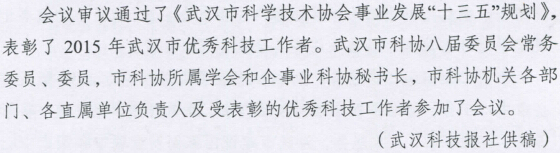 会议审议通过了《武汉市科学技术协会事业发展“十三五”规划》，
表彰了 2015 年武汉市优秀科技工作者。武汉市科协八届委员会常务
委员、委员，市科协所属学会和企事业科协秘书长，市科协机关各部
门、各直属单位负责人及受表彰的优秀科技工作者参加了会议。
（武汉科技报社供稿）